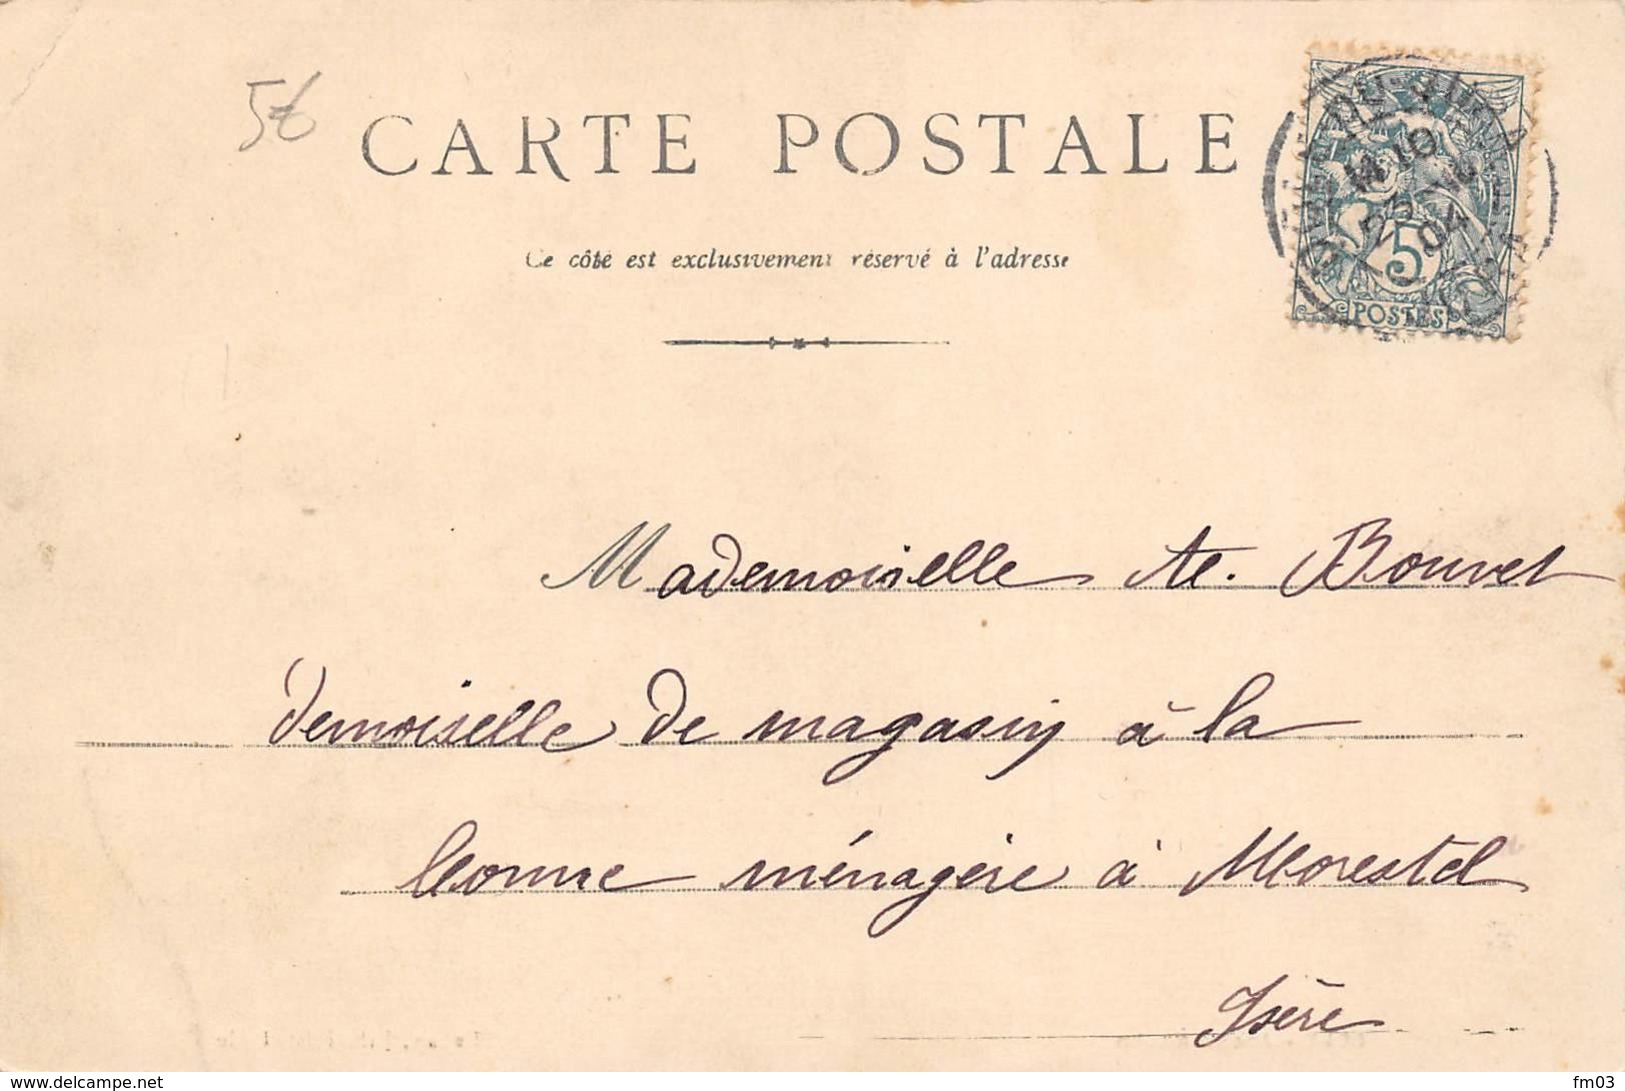 56
CARTE POSTALE
Ce côté est exclusivement réservé à l'adresse
5
POSTES
04
Mademoiselle A e. Bouvet
demoiselle de magasin à la
bonne ménagère à Morestel
Isère
www.delcampe.net
fm03